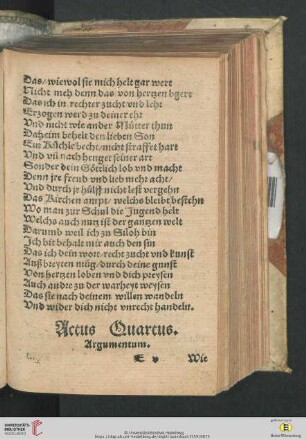 Das/ wiewol sie mich helt gar wert
Nicht meh denn das von hertzen bgert
Das ich in rechter zucht vnd lehr
Erzogen werd zu deiner ehr
Vnd nicht wie ander Mütter thun
Daheim behelt den lieben Son
Ein Köchle becht/ nicht straffet hart
Vnd vil nach henget seiner art
Sonder dein Göttlich lob vnd macht
Denn jre freud vnd lieb mehr acht/
Vnd durch jr hülff nicht lest vergehn
Das Kirchen ampt/ welchs bleibt bestehn
Wo man zur Schul die Jugend helt
Welchs auch nutz ist der gantzen welt
Darumb weil ich zu Siloh bin
Ich bit behalt mir auch den sin
Das ich dein wort/ recht zucht vnd kunst
Außbreyten müg/ durch deine gunst
Von hertzen loben vnd dich preysen
Auch andre zu der warheyt weysen
Das sie nach deinem willen wandeln
Vnd wider dich nicht vnrecht handeln.
Actus Quartus.
Argumentum.
E v Wie
UNIVERSITÄTS-
BIBLIOTHEK
HEIDELBERG
© Universitätsbibliothek Heidelberg